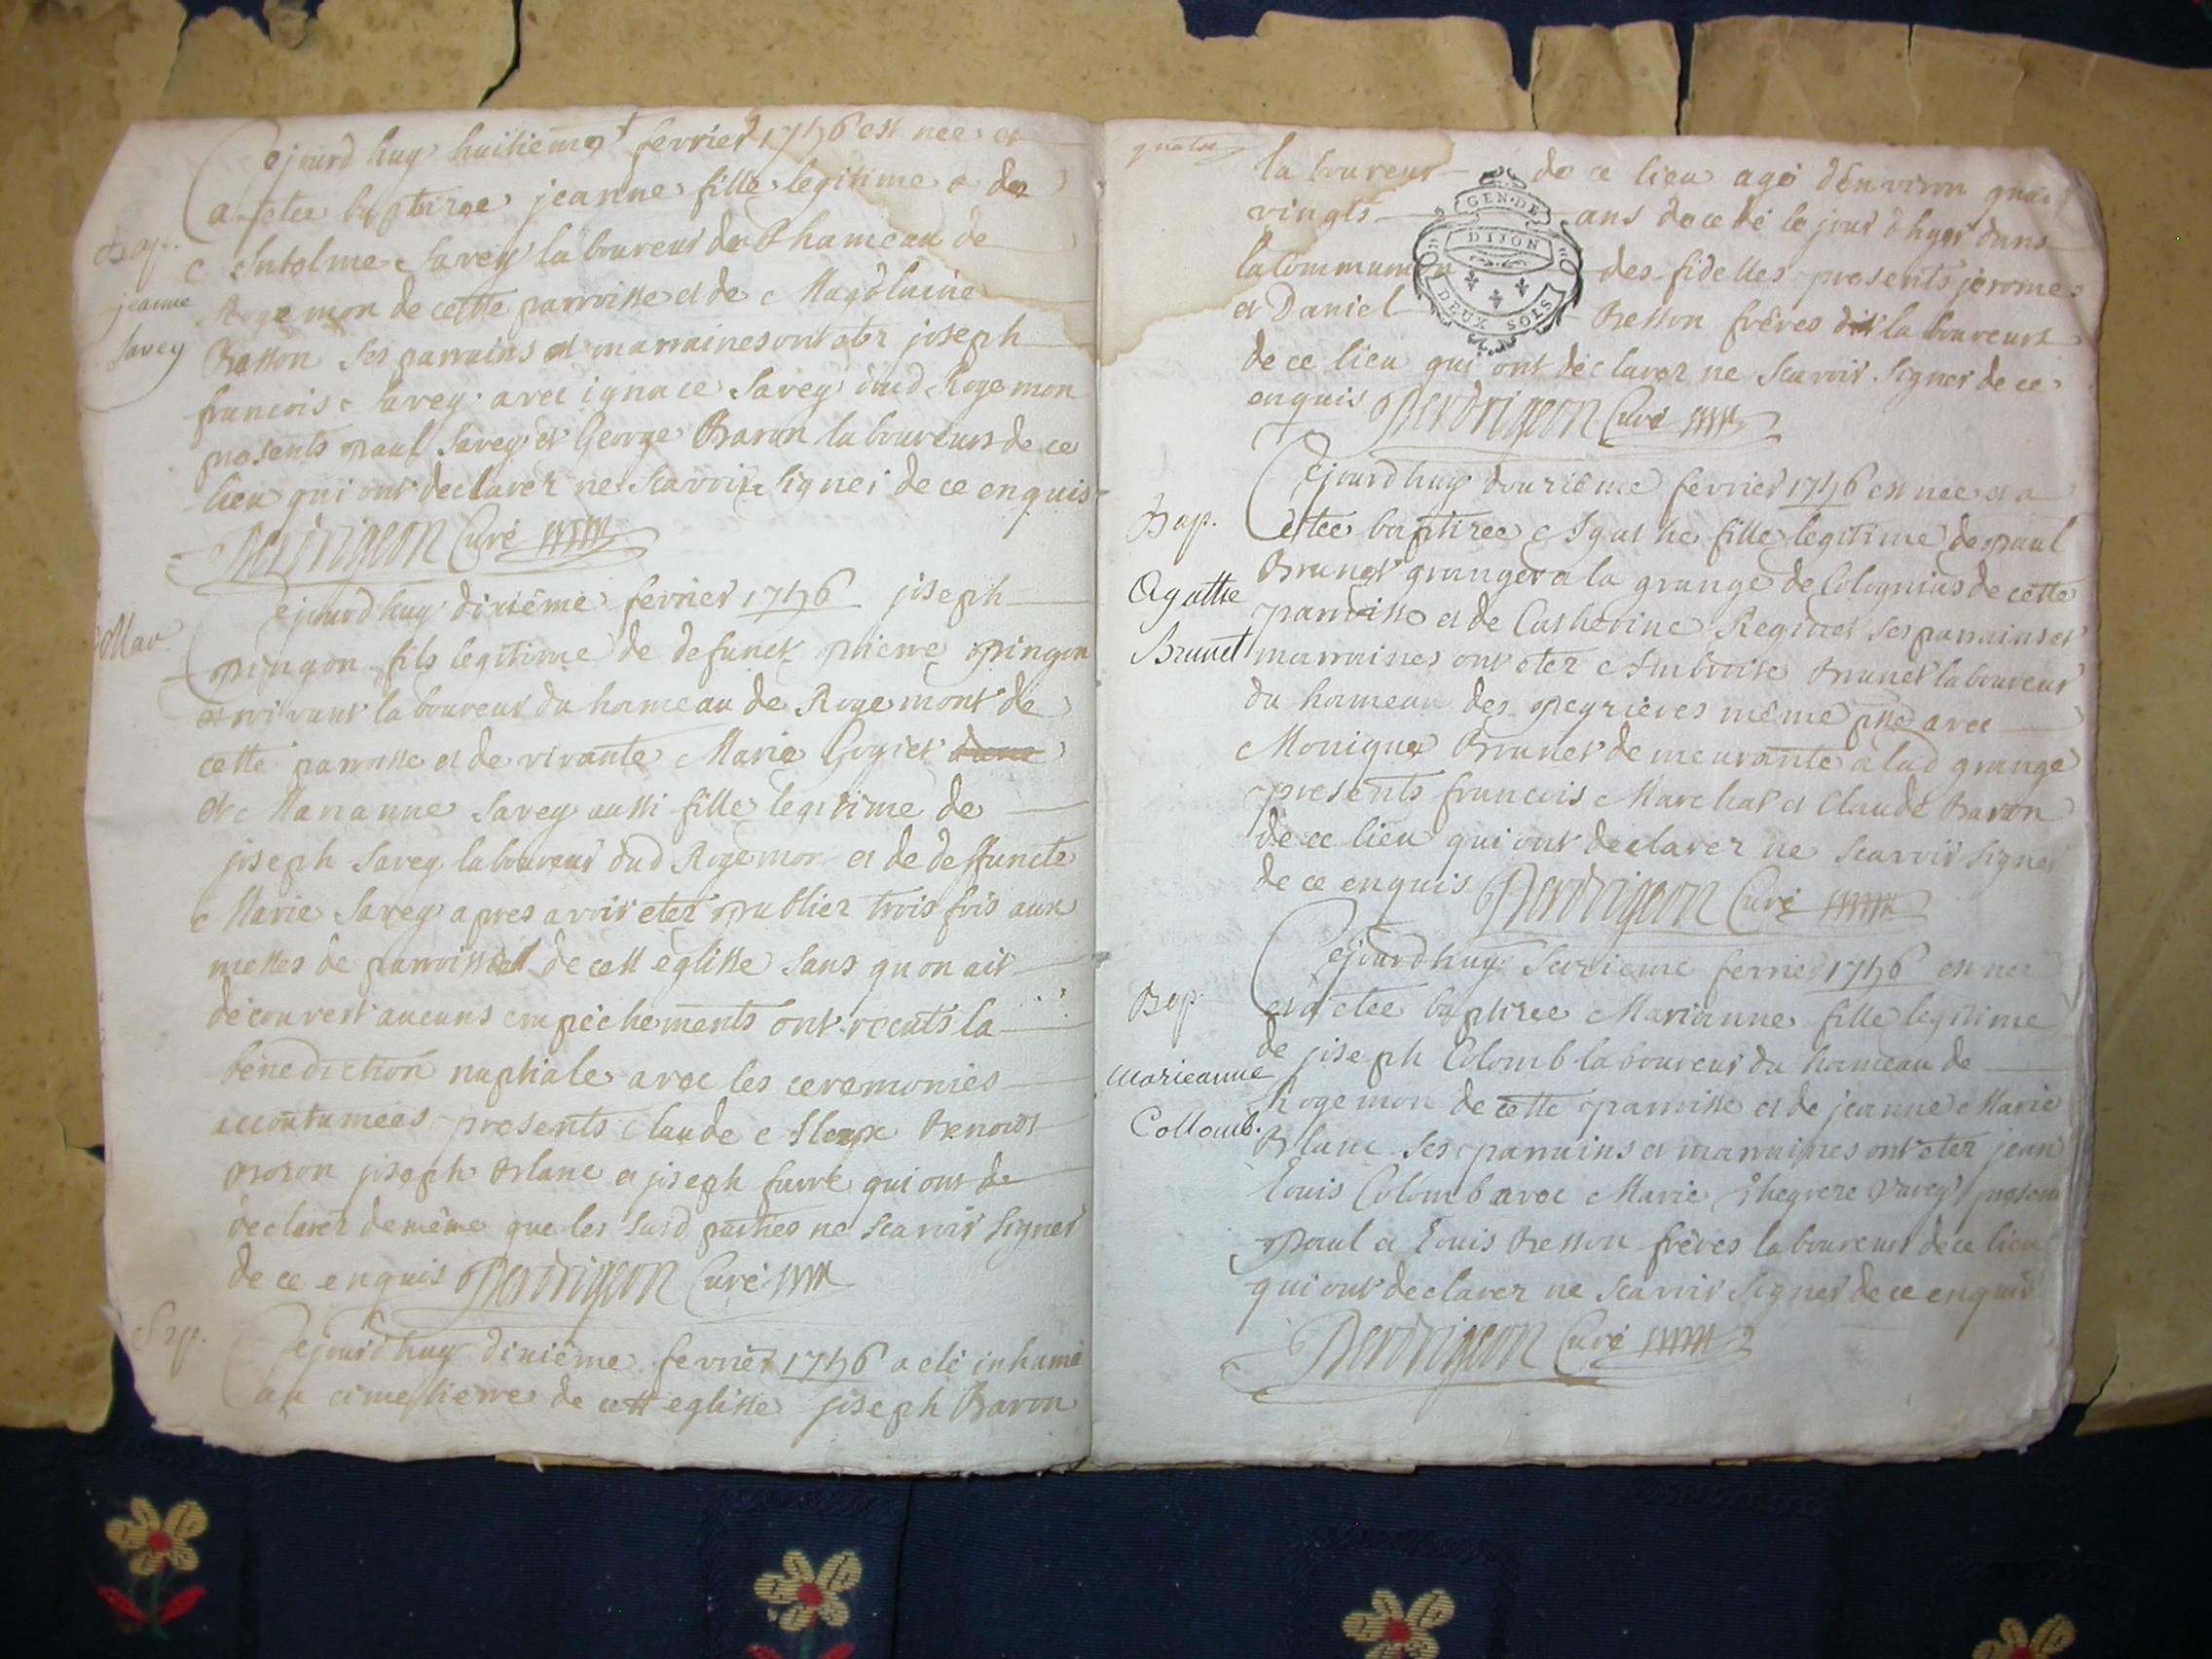 Cejourd huy huitieme fevrier 1746 est nee et
a etee baptizee jeanne fille legitime de
Bap.
Antelme Savey laboureur du hameau de
jeanne
Rogemon de cette parroisse et de Magdlaine
Savey
Besson ses parrains et marraines ont eter joseph
francois Savey avec ignace Savey dud Rogemon
presents paul Savey et George Baron laboureurs de ce
lieu qui ont declarer ne scavoir signer de ce enquis
Perdrigeon Curé
Cejourd huy dixiéme fevrier 1746 joseph
Mar.
pingon fils legitime de defunct pierre pingon
vivant laboureur du hameau de Rogemont de
cette parroisse et de vivante Marie Gogier
et Marianne Savey aussi fille legitime de
joseph Savey laboureur dud Rogemon et de deffuncte
Marie Savey apres avoir eter publier trois fois aux
messes de parroisse de cett églisse sans quon ait
découvert aucuns empéchements ont recuts la
bénediction nuptiale avec les ceremonies
accoutumées presents Claude Benoit
Boron joseph Blanc et joseph favre qui ont de
declarer de méme que les susd parties ne scavoir signer
de ce enquis Perdrigeon Curé
Sep.
Cejourd huy dixiéme fevrier 1746 a eté inhumé
au cimetierre de cett eglisse joseph Baron
laboureur de ce lieu agé d'environ quatre
vingts ans decedé le jour d'hyer dans
GEN. DE
DIJON
DEUX SOLS
la Communion des fidelles presents jerome
et Daniel Besson fréres laboureurs
de ce lieu qui ont déclarer ne scavoir signer de ce
enquis Perdrigeon Curé
Cejourd huy douziéme fevrier 1746 est nee et a
Bap.
etee baptizee Agathe fille legitime de paul
Brunet granger a la grange de Colognias de cette
Agathe
parroisse et de Catherine ses parrains et
Brunet
marraines ont eter Ambroise Brunet laboureur
du hameau des peyrieres méme psse avec
Monique Brunet demeurante à lad grange
presents francois Marchat et Claude Baron
de ce lieu qui ont declarer ne scavoir signer
de ce enquis Perdrigeon Curé
Cejourd huy seizieme fevrier 1746 est nee
Bap.
et a etee baptizee Marianne fille legitime
de joseph Colomb laboureur du hameau de
Marieanne
Rogemon de cette parroisse et de jeanne Marie
Collomb.
Blanc ses parrains et marraines ont eter jean
Louis Colomb avec Marie Savey presents
paul et Louis Besson fréres laboureurs de ce lieu
qui ont declarer ne scavoir signer de ce enquis
Perdrigeon Curé